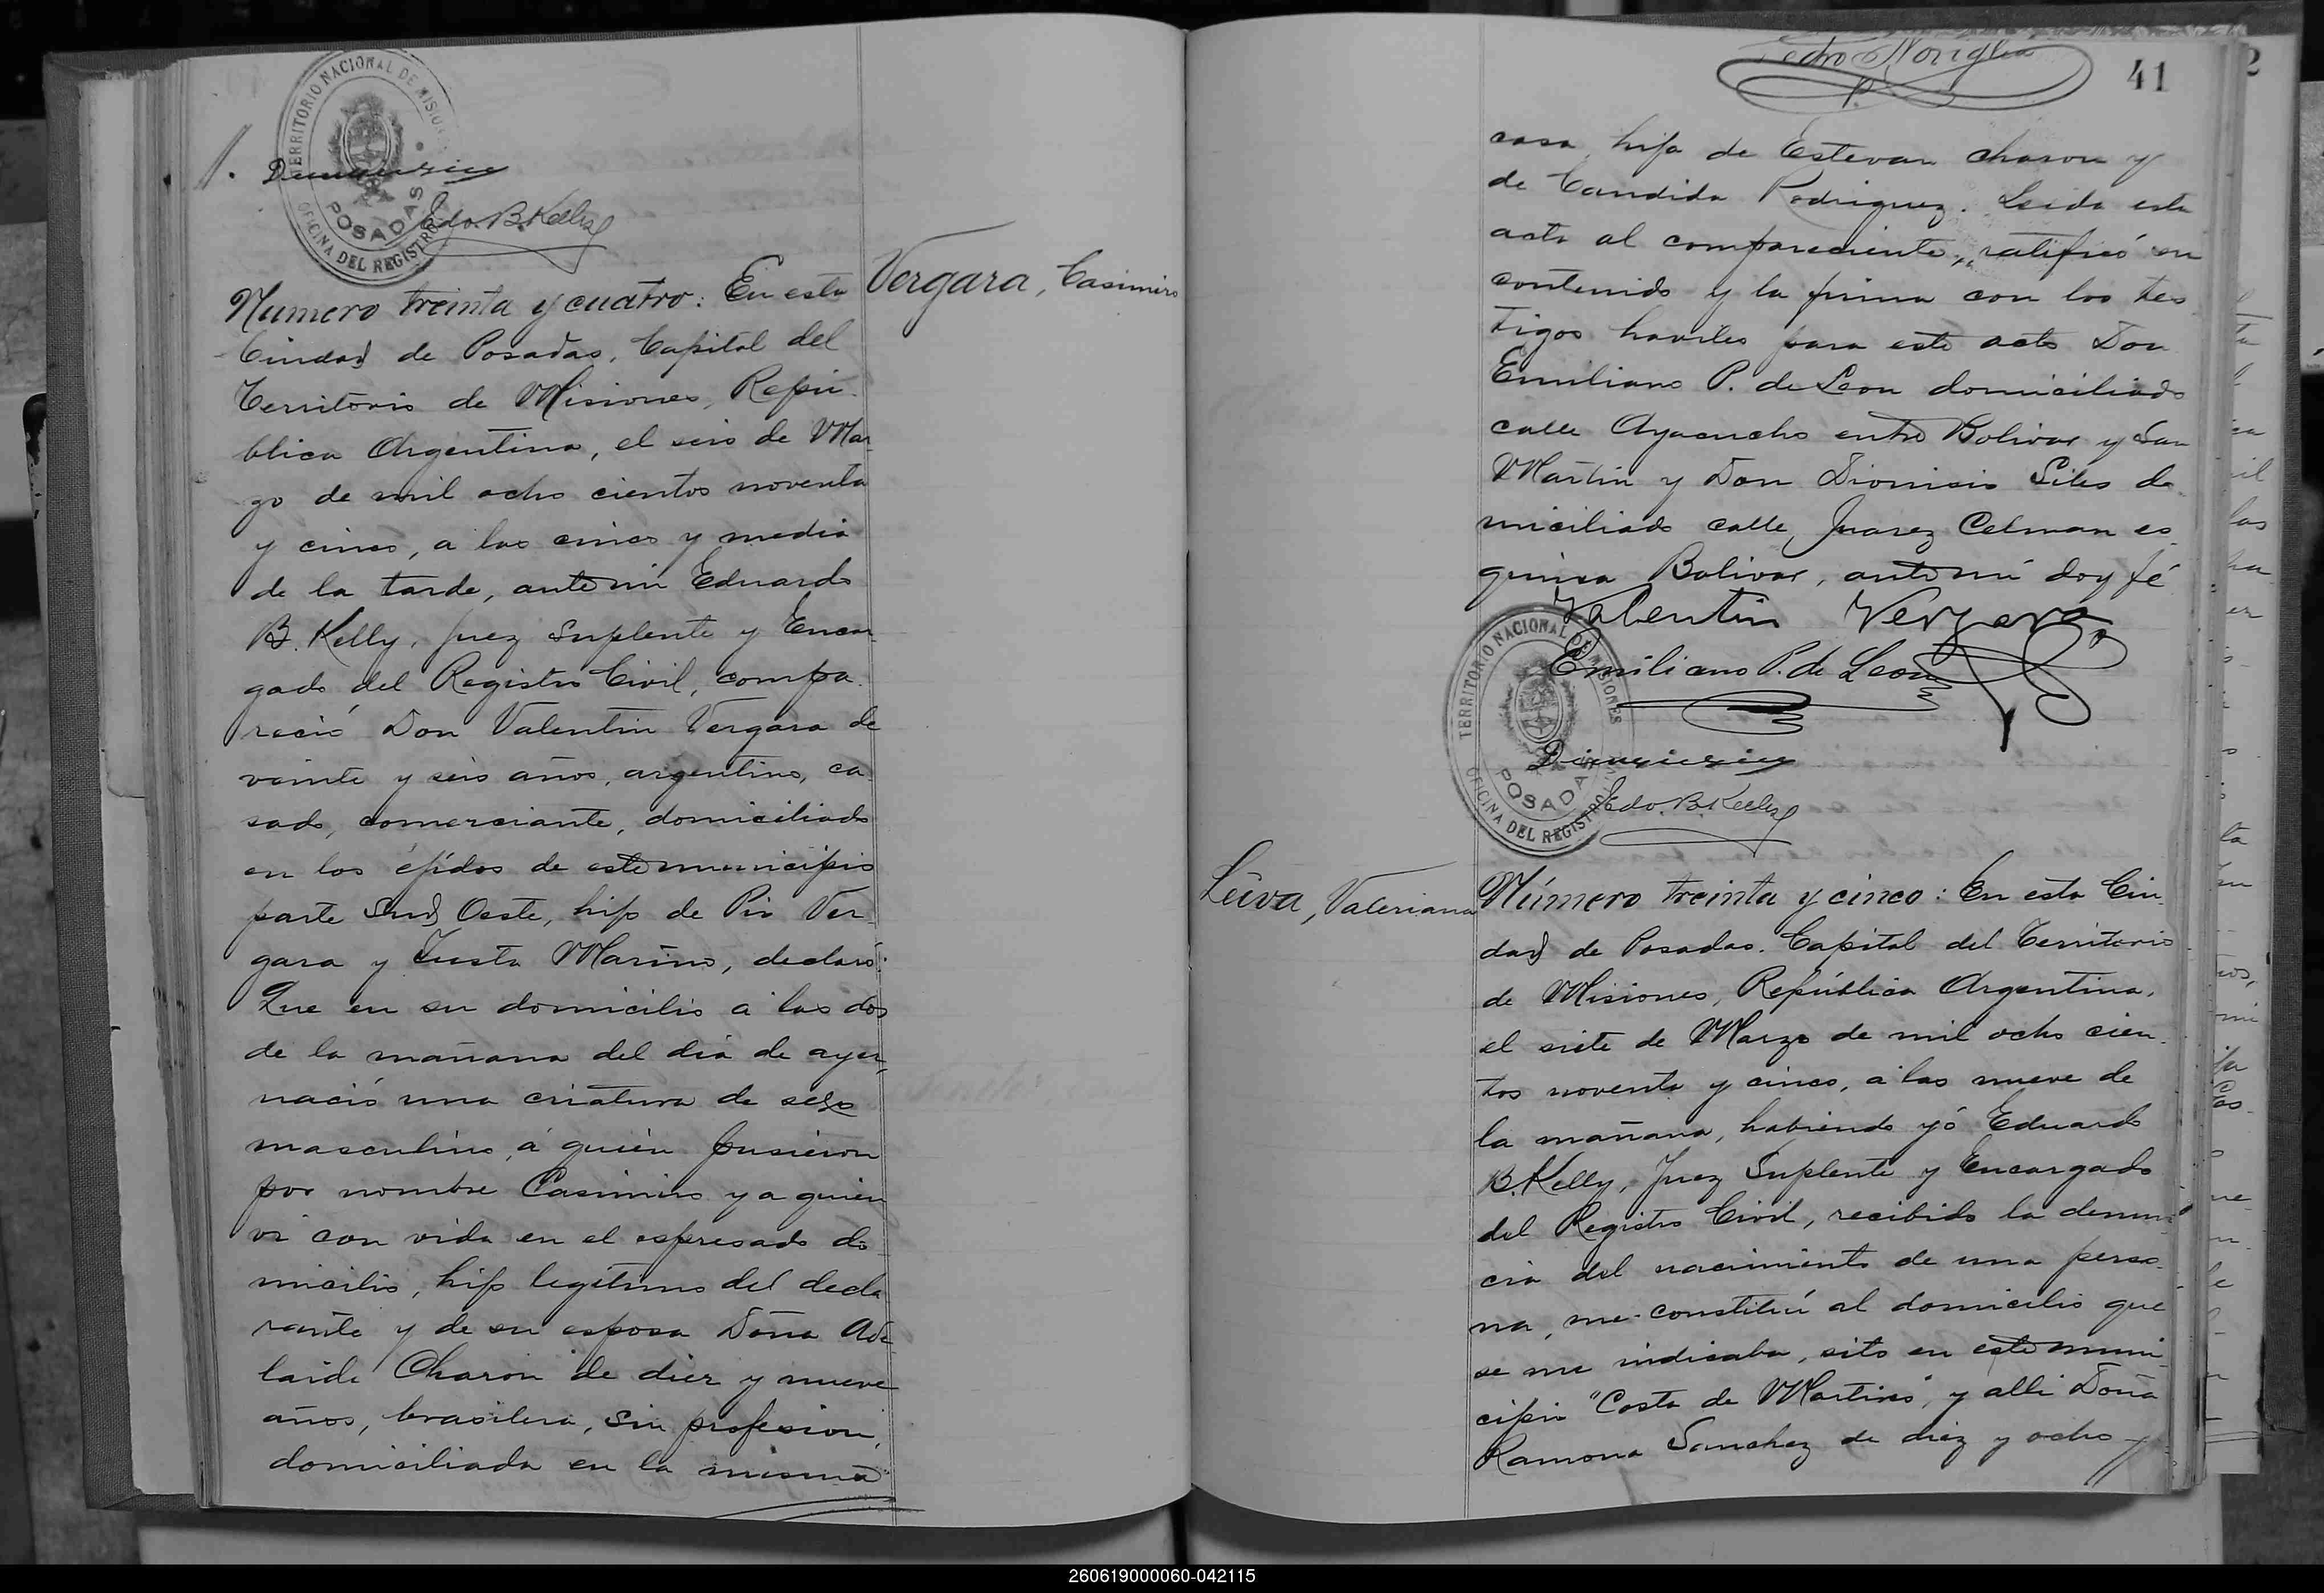 TERRITORIO NACIONAL DE MISIONES
OFICINA DEL REGISTRO
POSADAS
Edo. B. Kelly
Vergara, Casimiro
Numero treinta y cuatro: En esta
Ciudad de Posadas, Capital del
Territorio de Misiones, Repú
blica Argentina, el seis de Mar
zo de mil ocho cientos noventa
y cinco, a las cinco y media
de la tarde, ante mi Eduardo
B. Kelly, Juez Suplente y Encar
gado del Registro Civil, compa
reció Don Valentin Vergara de
veinte y seis años, argentino, ca
sado, comerciante, domiciliado
en los éjidos de este municipio
parte Sud Oeste, hijo de Pio Ver
gara y Justa Marino, declaró:
Que en su domicilio a las dos
de la mañana del dia de ayer,
nació una criatura de sexo
masculino á quien pusieron
por nombre Casimiro y a quien
vi con vida en el espresado do
micilio, hijo legítimo del decla
rante y de su esposa Doña Ade
laida Charon de diez y nueve
años, brasilera, sin profesion,
domiciliada en la misma
41
casa, hija de Estevan Charon y
de Candida Rodriguez. Leida esta
acta al compareciente, ratificó su
contenido y la firma con los tes
tigos haviles para este acto Don
Emiliano P. de Leon domiciliado
calle Ayacucho entre Bolivar y San
Martin y Don Dionisio Siles do
miciliado calle Juarez Celman es
quina Bolivar, ante mi doy fé
Valentin Vergara
Emiliano P. de Leon
TERRITORIO NACIONAL DE MISIONES
OFICINA DEL REGISTRO CIVIL
POSADAS
Edo. B. Kelly
Leiva, Valeriana
Número treinta y cinco: En esta Ciu
dad de Posadas, Capital del Territorio
de Misiones, República Argentina,
el siete de Marzo de mil ocho cien
tos noventa y cinco, a las nueve de
la mañana, habiendo yó Eduardo
B. Kelly, Juez Suplente y Encargado
del Registro Civil, recibido la denun
cia del nacimiento de una perso
na, me constituí al domicilio que
se me indicaba, sito en este muni
cipio "Costa de Martires" y alli Doña
Ramona Sanchez de diez y ocho
260619000060-042115